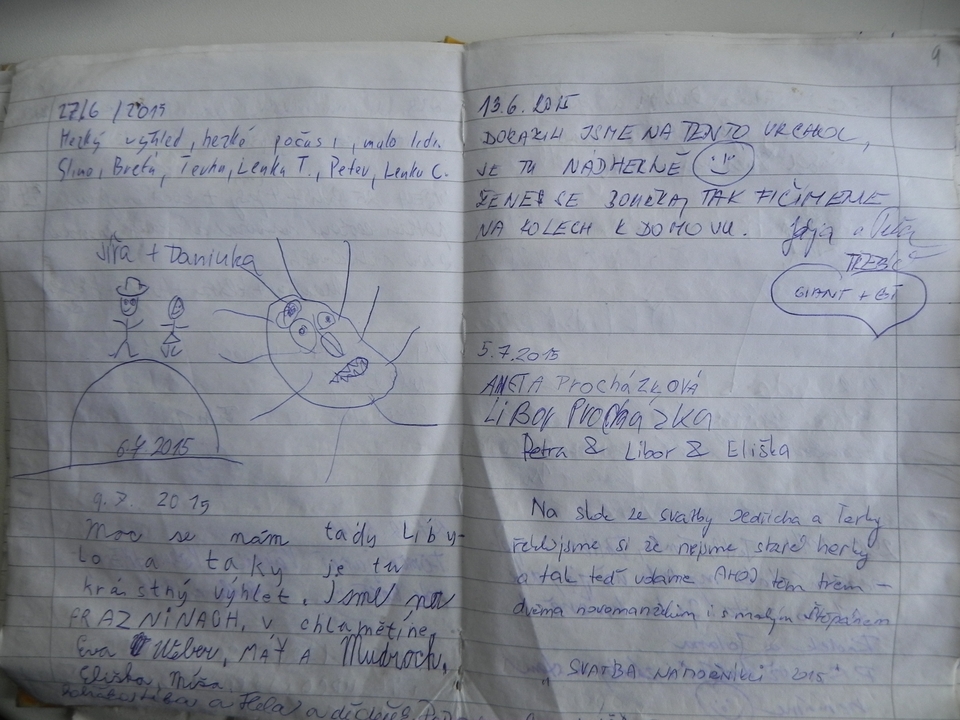 27/6 /2015
Hezký výhled, hezké počasí, málo lidí.
Lenka T., Peter, Lenka C.
Jířa + Daniuka
6.7.2015
9.7. 2015
Moc se nám tady líby-
lo a taky je tu
krástný výhlet. Jsme na
PRAZNINACH, v chlamětine.
Eva Weber, MÁŤA Mudroch,
Eliška, Míša
a děda
9
13.6.2015
DORAZILI JSME NA TENTO VRCHOL,
JE TU NÁDHERNĚ
ŽENE SE BOUŘKA, TAK FIČÍMEME
NA KOLECH K DOMOVU. a
TŘEBÍČ
GIANT + GT
5.7.2015
ANETA Procházková
LiBor Procházka
Petra & Libor & Eliška
Na skok ze svatby Jedřicha a Terky
řekli jsme si že nejsme staré herky
a tak teď voláme AHOJ těm třem –
dvěma novomanželům i s malým Štěpánem
"SVATBA NÁMOŘNÍKŮ 2015"